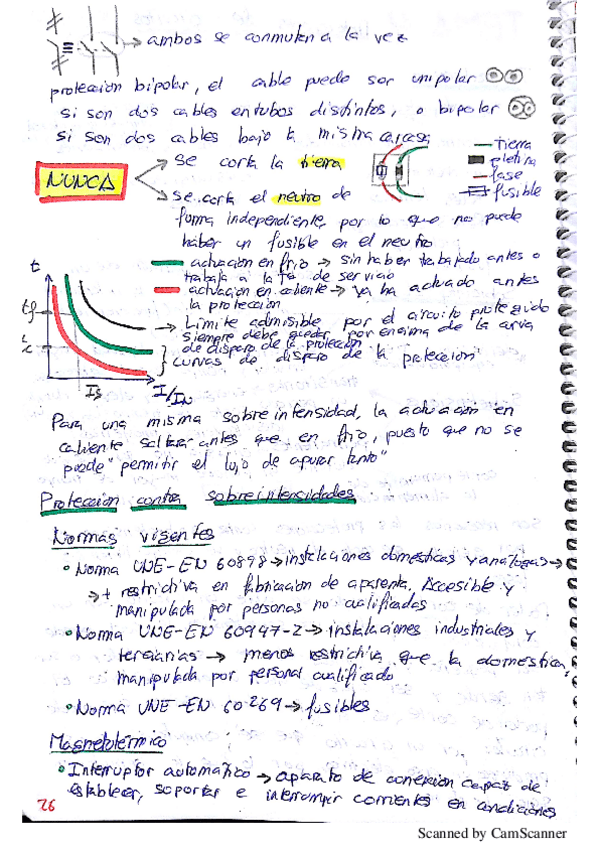 ambos se conmutan a la vez
protección bipolar, el cable puede ser unipolar
si son dos cables en tubos distintos, o bipolar
si son dos cables bajo la misma carcasa
NUNCA
se corta la tierra
se corta el neutro de
forma independiente, por lo que no puede
haber un fusible en el neutro
tierra
pletina
fase
fusible
actuación en frio → sin haber trabajado antes o
trabaja a la Tª de servicio
actuación en caliente → ya ha actuado antes
la protección
Límite admisible por el circuito protegido
siempre debe quedar por encima de la curva
de disparo de la protección
curvas de disparo de "la protección"
t
tf
tc
Is
I/IN
Para una misma sobreintensidad, la actuación en
caliente saltará antes que en frio, puesto que no se
puede "permitir el lujo de apurar tanto"
Protección contra sobreintensidades
Normas vigentes
• Norma UNE-EN 60898 → instalaciones domésticas y analogas →
→ + restrictiva en fabricación de aparenta. Accesible y
manipulada por personas no cualificadas
• Norma UNE-EN 60947-2 → instalaciones industriales y
terciarias → menos restrictiva que la doméstica,
manipulada por personal cualificado
• Norma UNE-EN 60269 → fusibles
Magnetotérmico
• Interruptor automático → aparato de conexión capaz de
establecer, soportar e interrumpir corrientes en condiciones
26
Scanned by CamScanner